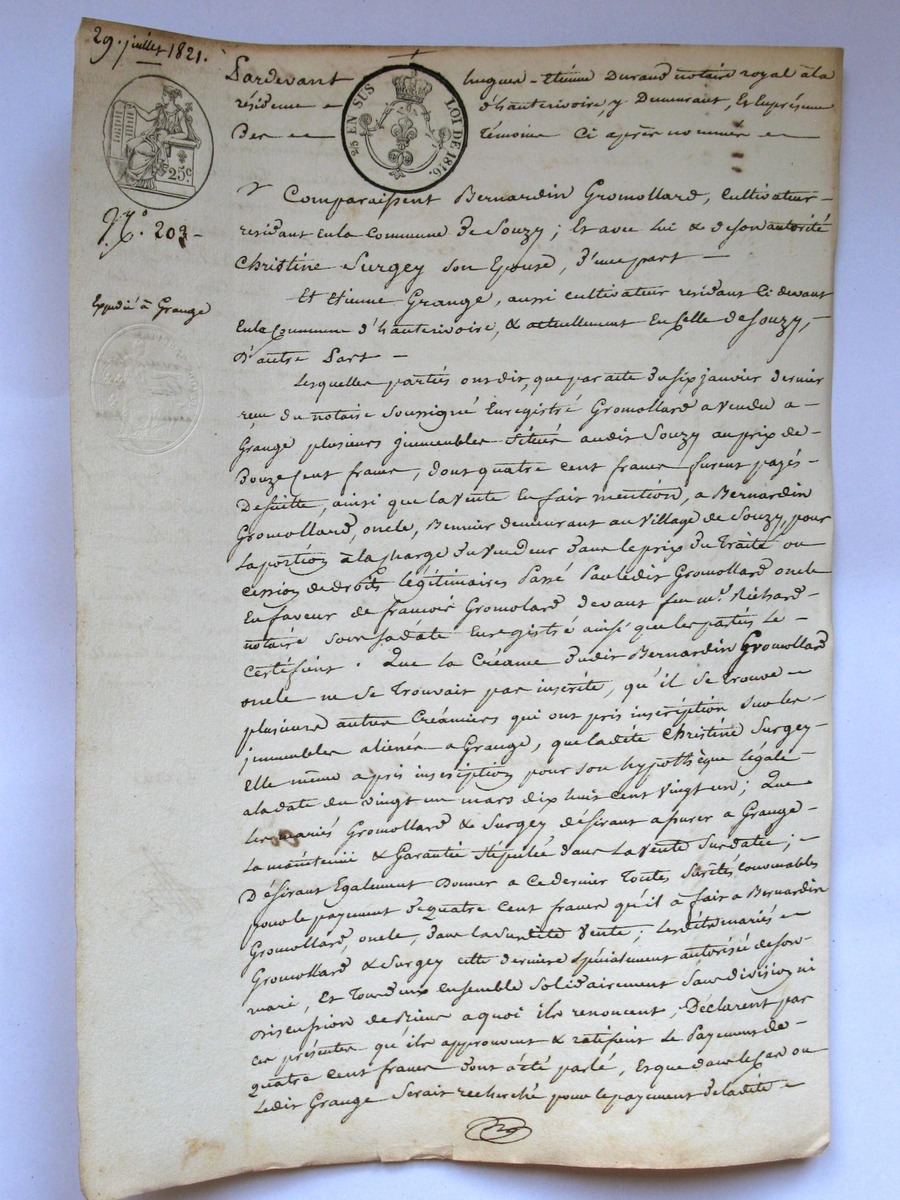 29. juillet 1821.
25c.
25 EN SUS LOI DE 1816.
N.º 203-
Expédié à Grange
Pardevant hugues-Etienne Durand notaire royal à la
résidence d'hauterivoire, y Demeurant, Et En présence
Des témoins Ci après nommés
Comparaissent Bernardin Gromollard, Cultivateur
residant En la Commune de Souzy; Et avec Lui & de son autorité
Christine Surgey son Epouse, D'une part
Et Etienne Grange, aussi cultivateur residant Ci devant
En la Commune d'hauterivoire, & actuellement En Celle de Souzy,
D'autre Part
Lesquelles parties ont dit, que par acte du six janvier dernier
reçu du notaire soussigné Enregistré Gromollard a vendu a
Grange plusieurs immeubles Situés audit Souzy au prix de
Douze Cent francs, dont quatre cent francs furent payés
De suitte, ainsi que la vente En fait mention, a Bernardin
Gromollard, oncle, demeurant au Village de Souzy, pour
La portion à la Charge du vendeur dans le prix du Traité ou
cession de droits légitimaires Passé Par ledit Gromollard oncle
En faveur de françois Gromolard devant feu m.e Richard
notaire sous sa date Enregistré ainsi que les parties Le
Certifient. Que la Créance dudit Bernardin Gromollard
oncle ne se trouvait pas inscrite, qu'il se trouve
plusieurs autres Créanciers qui ont pris inscription sur les
immeubles aliénés a Grange, que ladite Christine Surgey
elle même a pris inscription pour son hypothèque légale
a la date du vingt un mars dix huit cent vingt un; Que
Les mariés Gromollard & Surgey désirant assurer a Grange
La maintenüe & Garantie stipulée dans La vente Susdatée;
Désirant Egalement Donner a ce dernier Toutes Sûretés Convenables
pour le payement de quatre Cent francs qu'il a fait a Bernardin
Gromollard, oncle, dans la susdite vente; lesdits mariés
Gromollard & Surgey cette derniere spécialement autorisée de son
mari, Et Tous deux ensemble Solidairement Sans division ni
discussion de biens a quoi ils renoncent, Déclarent par
ces présentes qu'ils approuvent & ratifient Le Payement de
quatre Cent francs dont a été parlé, Et que dans le Cas ou
Ledit Grange Serait recherché pour le payement de ladite